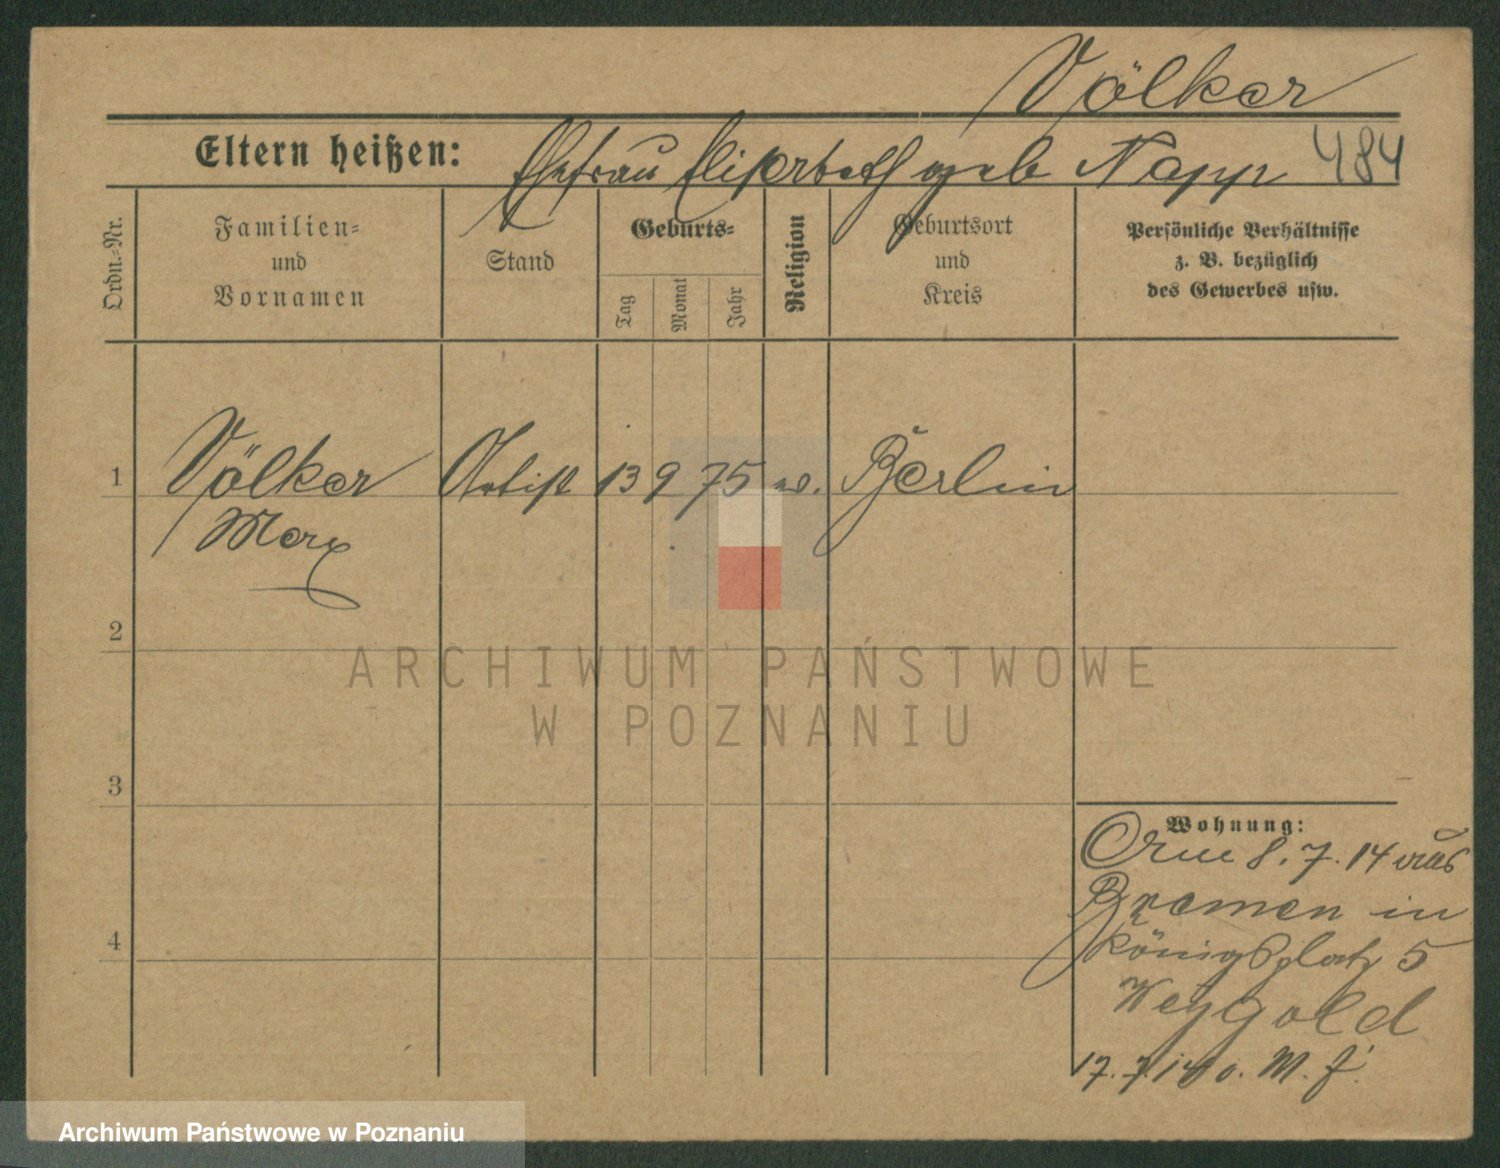 Völker
Eltern heißen: Ehefrau Elisabeth geb Napp 484
Ordn.-Nr.
Familien-
und
Vornamen
Stand
Geburts-
Tag
Monat
Jahr
Religion
Geburtsort
und
Kreis
Persönliche Verhältnisse
z. B. bezüglich
des Gewerbes usw.
1 Völker Artist 13 9 75 ev. Berlin
Max
2
ARCHIWUM PAŃSTWOWE
W POZNANIU
3
Wohnung:
8. 7. 14 aus
Bremen in
4 Königsplatz 5
Weygold
17. 7. 14 o. M. f.
Archiwum Państwowe w Poznaniu